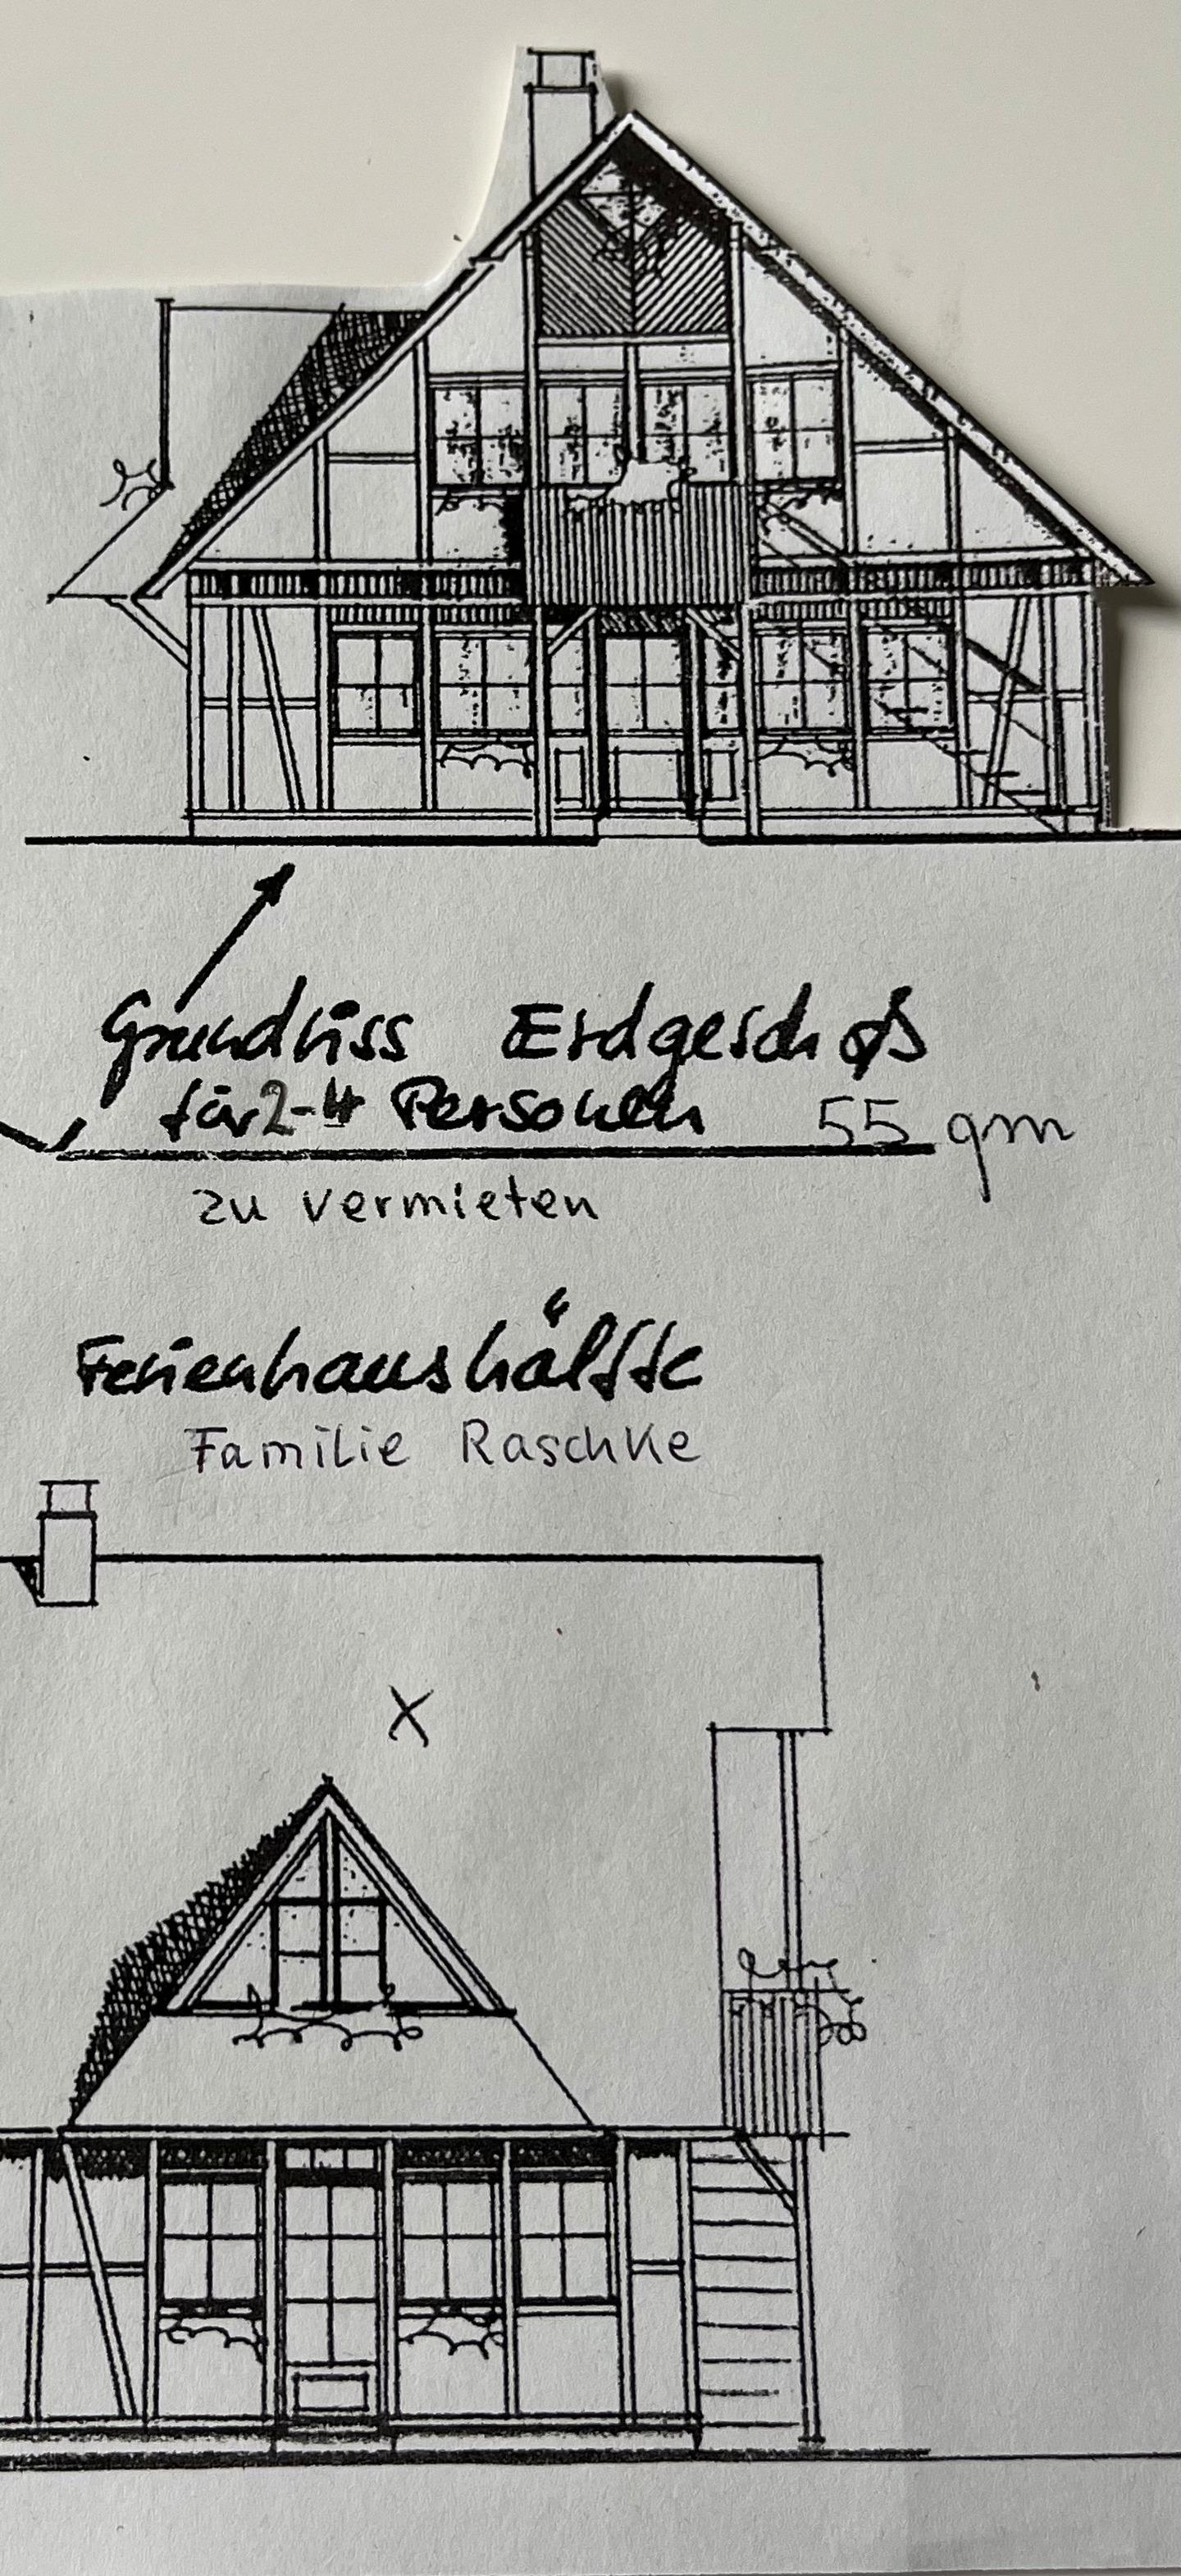 Grundriss Erdgeschoß
für 2-4 Personen 55 qm
zu vermieten
Ferienhaushälfte
Familie Raschke
X